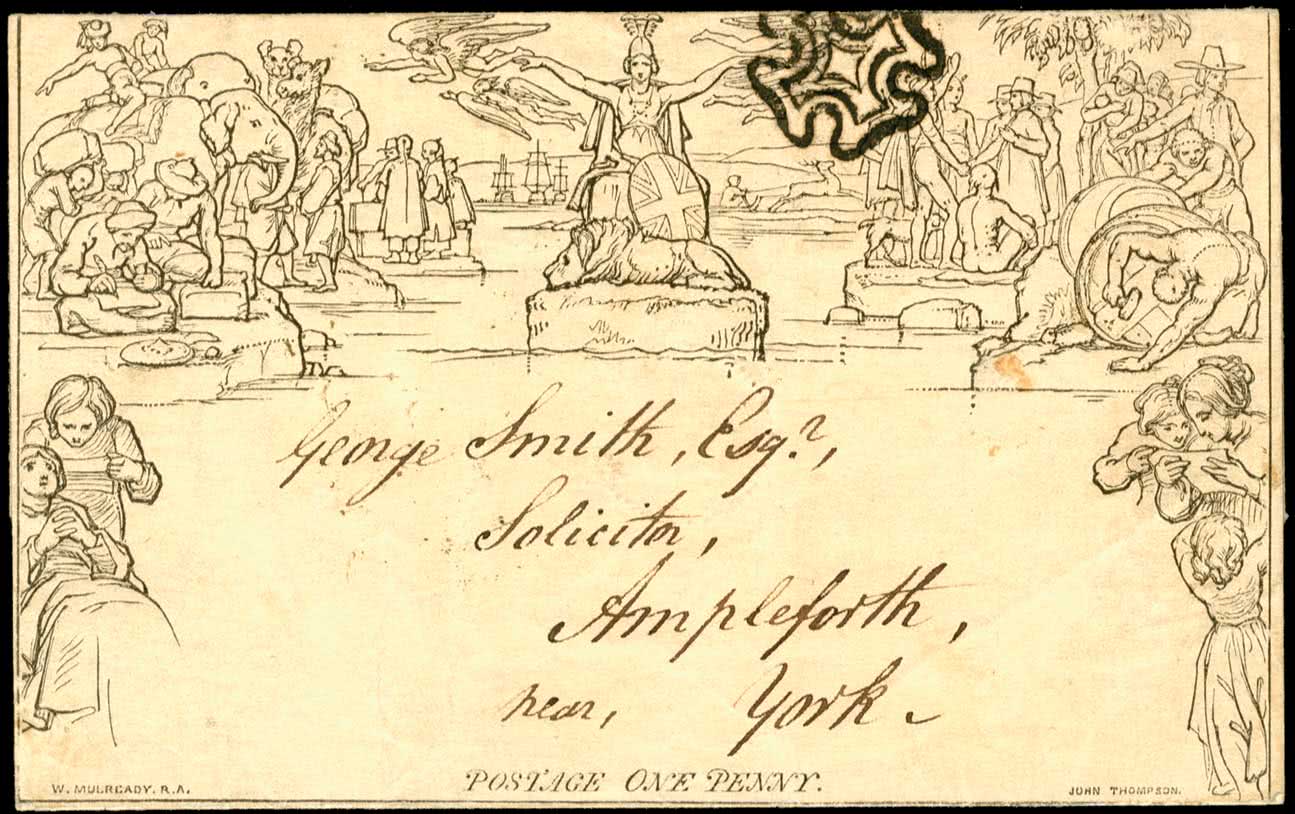 George Smith, Esqr,
Solicitor,
Ampleforth,
near, York.
POSTAGE ONE PENNY.
W. MULREADY. R.A.
JOHN THOMPSON.